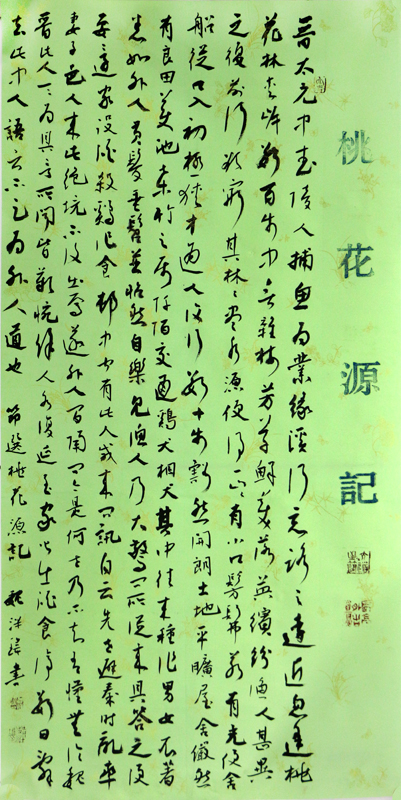 桃花源記
晉太元中武陵人捕魚為業緣溪行忘路之遠近忽逢桃
花林夾岸數百步中無雜樹芳草鮮美落英繽紛漁人甚異
之復前行欲窮其林々盡水源便得一山有小口髣髴若有光便舍
船從口入初極狹才通人復行數十步豁然開朗土地平曠屋舍儼然
有良田美池桑竹之屬阡陌交通鷄犬相聞其中往來種作男女衣著
悉如外人黃髮垂髫並怡然自樂見漁人乃大驚問所從來具答之便
要還家設酒殺鷄作食村中聞有此人咸來問訊自云先世避秦時亂率
妻子邑人來此絕境不復出焉遂外人間隔問今是何世乃不知有漢無論魏
晉此人一一為具言所聞皆歎惋餘人各復延至家皆出酒食停數日辭
去此中人語云不足為外人道也 節選桃花源記 書